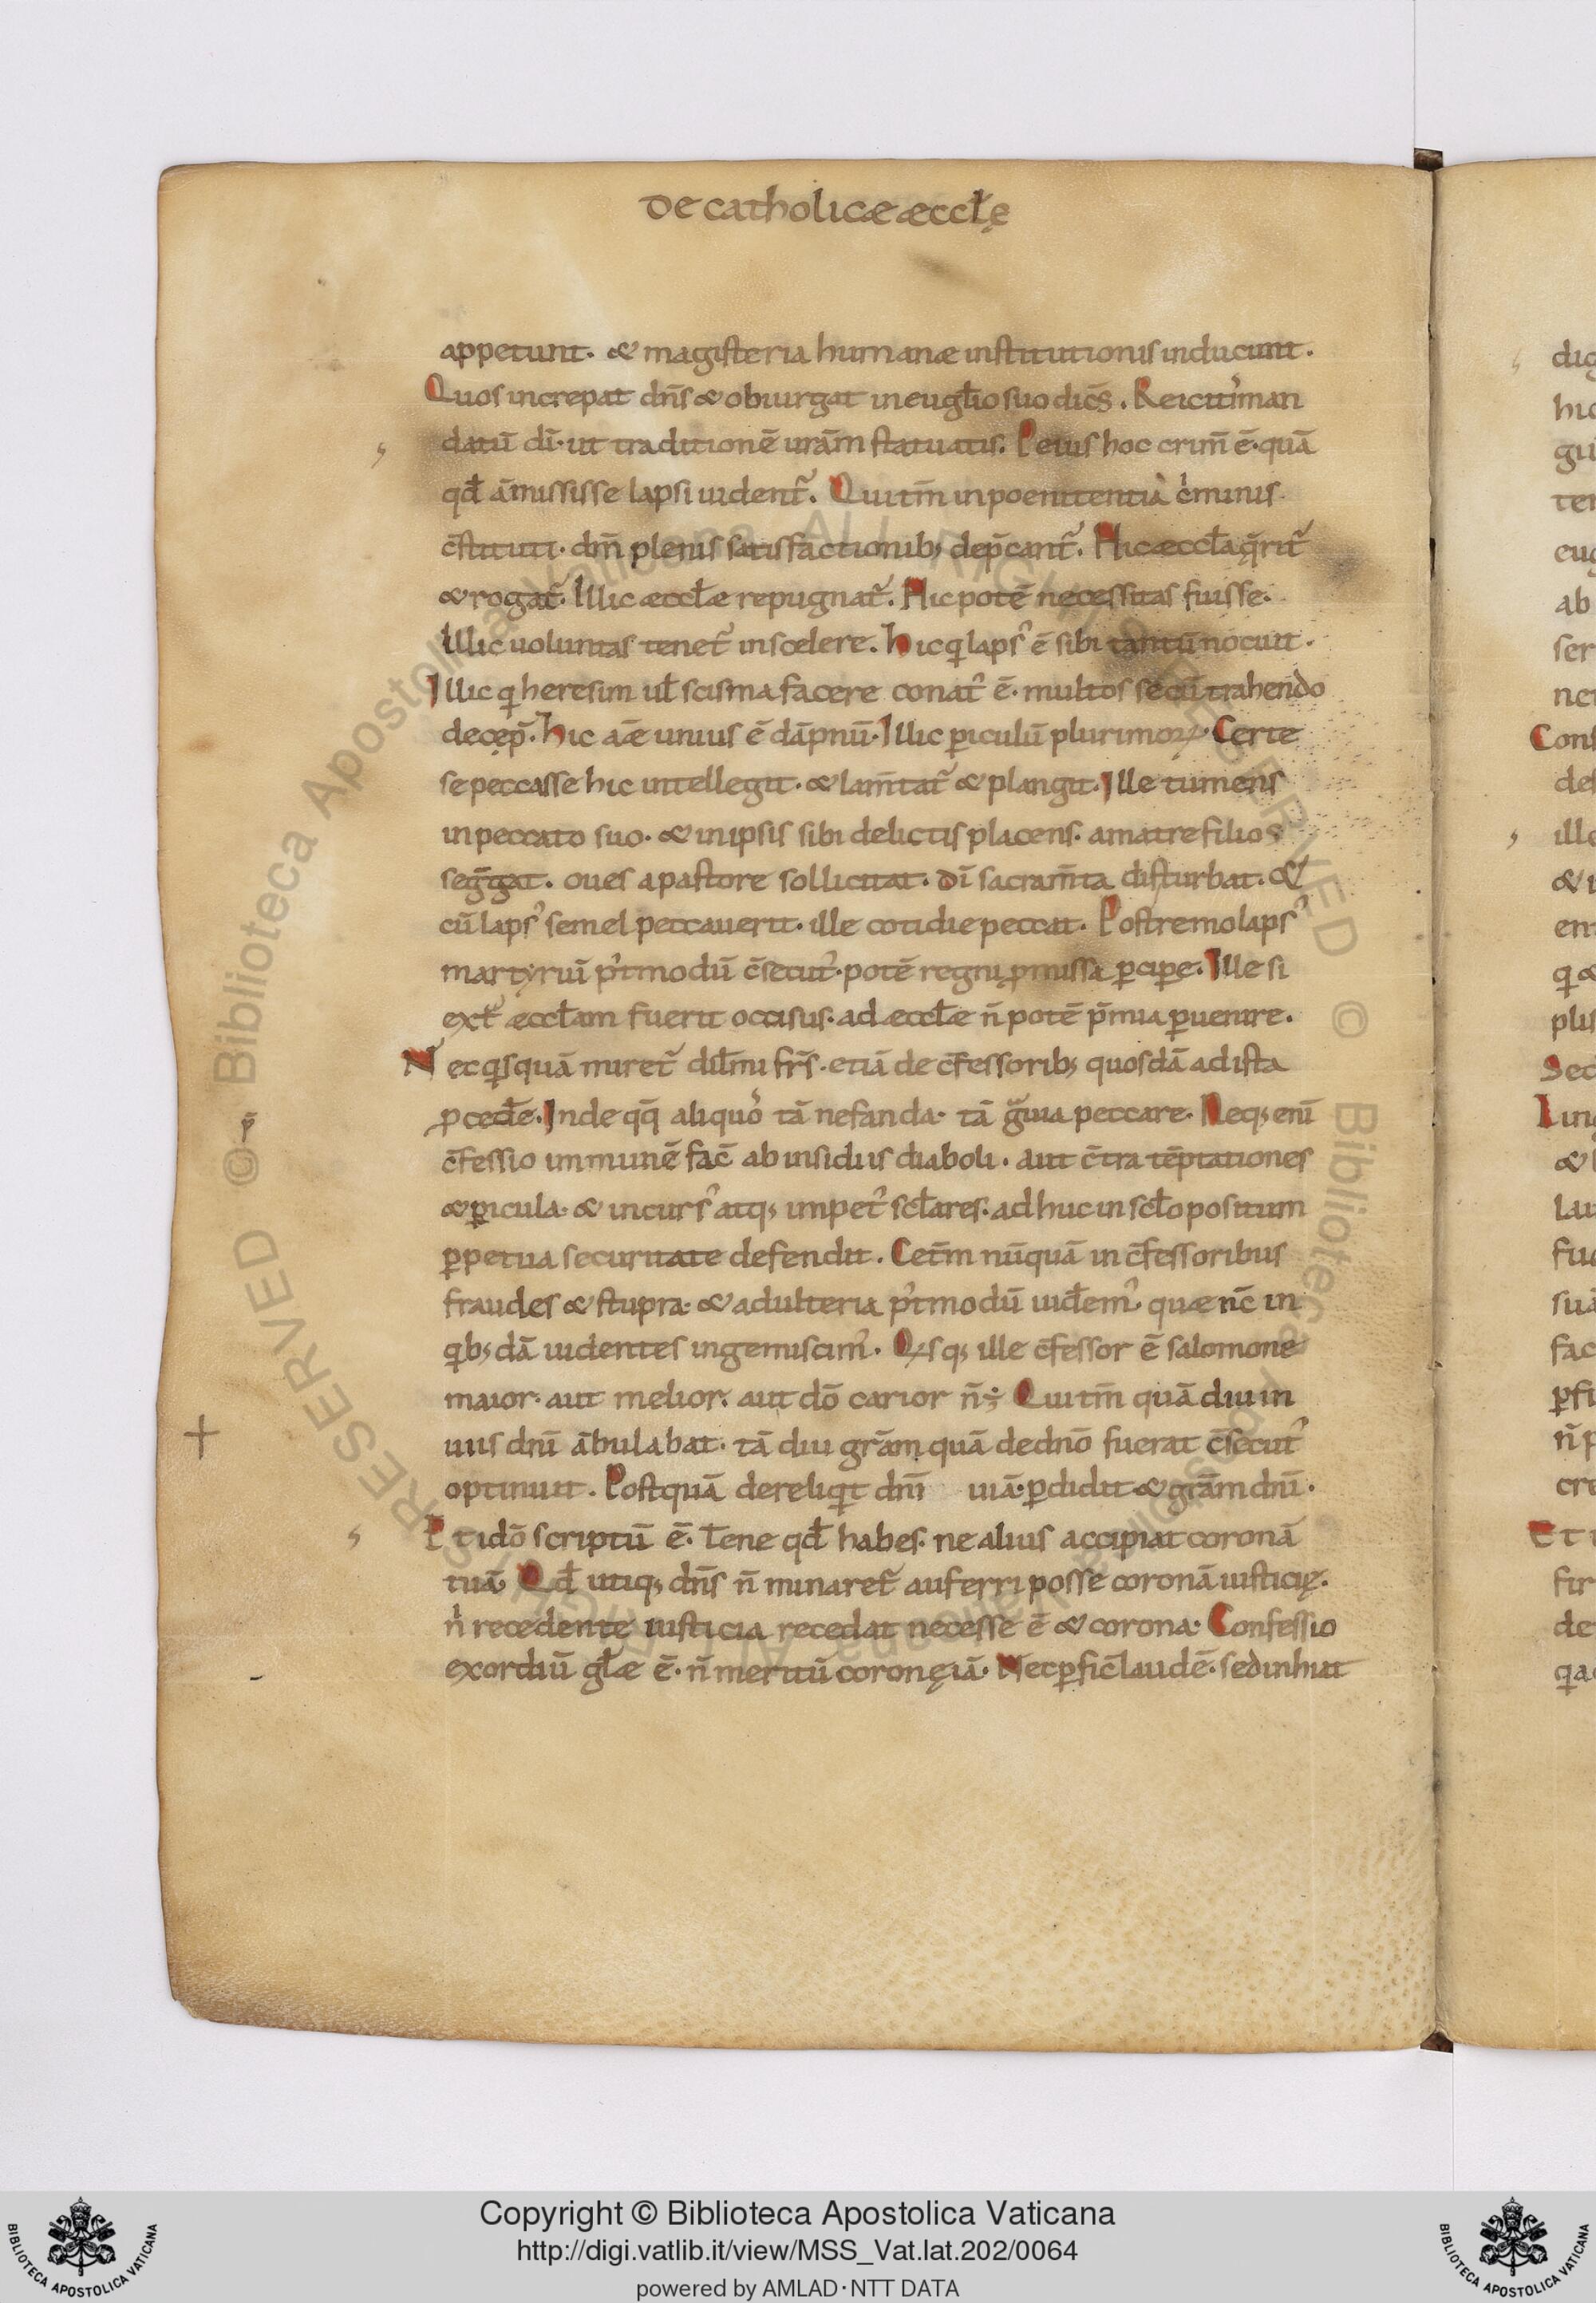 De catholicæ æccłę
appetunt. & magisteria humanæ institutionis inducunt.
Quos increpat dn̄s & obiurgat in eugłio suo dicēs. Reicitis man
datū dī. ut traditionē urām statuatis. Peius hoc crim̄ ē. quā
qđ āmississe lapsi uident᷑. Qui tm̄ in poenitentia c̓minis
c̄stituti. dm̄ plenis satisfactionib; dep̄cant᷑. Hic æccła q̄rit᷑
& rogat᷑. Illic æccłæ repugnat᷑. Hic potē necessitas fuisse.
Illic uoluntas tenet᷑ in scelere. Hic qi laps᾿ ē sibi tantū nocuit.
Illic qi heresim uł scisma facere conat᷑ ē. multos secū trahendo
decep̄. Hic aǣ unius ē dāpnū. Illic ꝑiculū plurimoꝝ. Certe
se peccasse hic intellegit. & lam̄tat᷑ & plangit. Ille tumens
in peccato suo. & in ipsis sibi delictis placens. a matre filios
seg̅gat. oues a pastore sollicitat. dī sacram̄ta disturbat. &
cū laps᾿ semel peccauerit. ille cotidie peccat. Postremo laps᾿
martyriū p᾿tmodū c̄secut᾿. potē regni ꝓmissa ꝑcipe. Ille si
ext᷑ æccłam fuerit occisus. ad æccłæ n̄ potē p̄mia ꝑuenire.
Nec qisquā miret᷑ diłmi frs̄. etiā de c̄fessorib; quosdā ad ista
ꝓcedē. Inde qq̄ aliquo᾿ tā nefanda. tā g̅uia peccare. Neq; enī
c̄fessio immunē fac̄ ab insidiis diaboli. aut c̄tra tēptationes
& ꝑicula. & incurs᾿ atq; impet᾿ scłares. ad huc in scło positum
ꝑpetua securitate defendit. Cet̄m nūquā in c̄fessoribus
fraudes & stupra. & adulteria p᾿tmodū uidem᾿. quæ nc̄ in
qib; dā uidentes ingemiscim᾿. Qisq; ille c̄fessor ē salomone
maior. aut melior. aut dō carior n̄ ÷ Qui tm̄ quā diu in
uiis dnī ābulabat. tā diu grām quā de dnō fuerat c̄secut᾿
optinuit. Postquā dereliqit dnī uiā. ꝑdidit & grām dnī.
Et idō scriptū ē. Tene qđ habes. ne alius accipiat coronā
tuā. Qđ utiq; dn̄s n̄ minaret᷑ auferri posse coronā iusticię.
n̓ recedente iusticia recedat necesse ē & corona. Confessio
exordiū głæ ē. n̄ meritū coronę iā. Nec ꝑfic̄ laudē. sed inhiat
dig
hic
gu
ter
eug
ab
ser
net
Cons
del
ille
& i
ent
qi &
plis
Sec
Iud
& l
lau
fuc
suā
fac
ꝑfi
n̄ p
cre
Et i
fir
de
qia
Copyright © Biblioteca Apostolica Vaticana
http://digi.vatlib.it/view/MSS_Vat.lat.202/0064
powered by AMLAD·NTT DATA